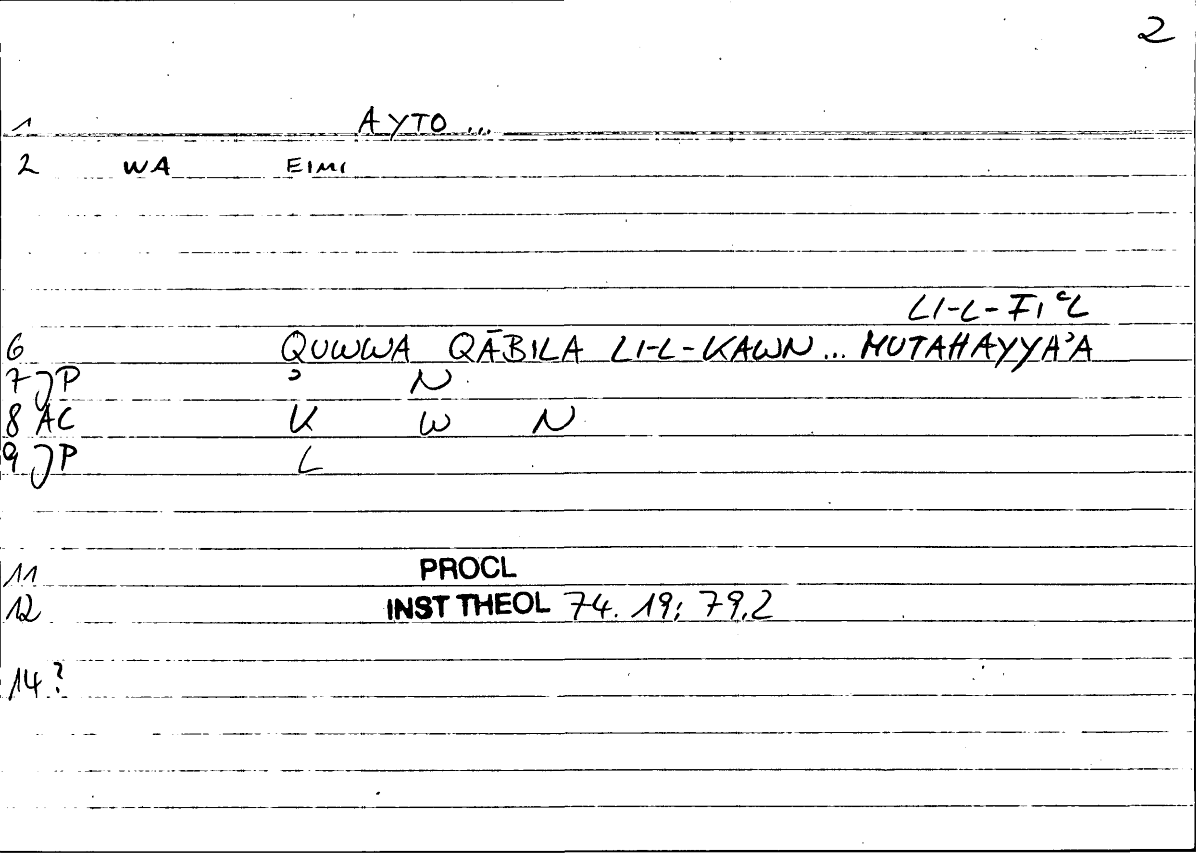 2
1 AYTO ...
2 WA EIMI
LI-L-FIʿL
6 QUWWA QĀBILA LI-L-KAWN ... MUTAHAYYAʾA
7 JP ʾ N
8 AC K W N
9 JP L
11 PROCL
12 INST THEOL 74. 19; 79.2
14 ?